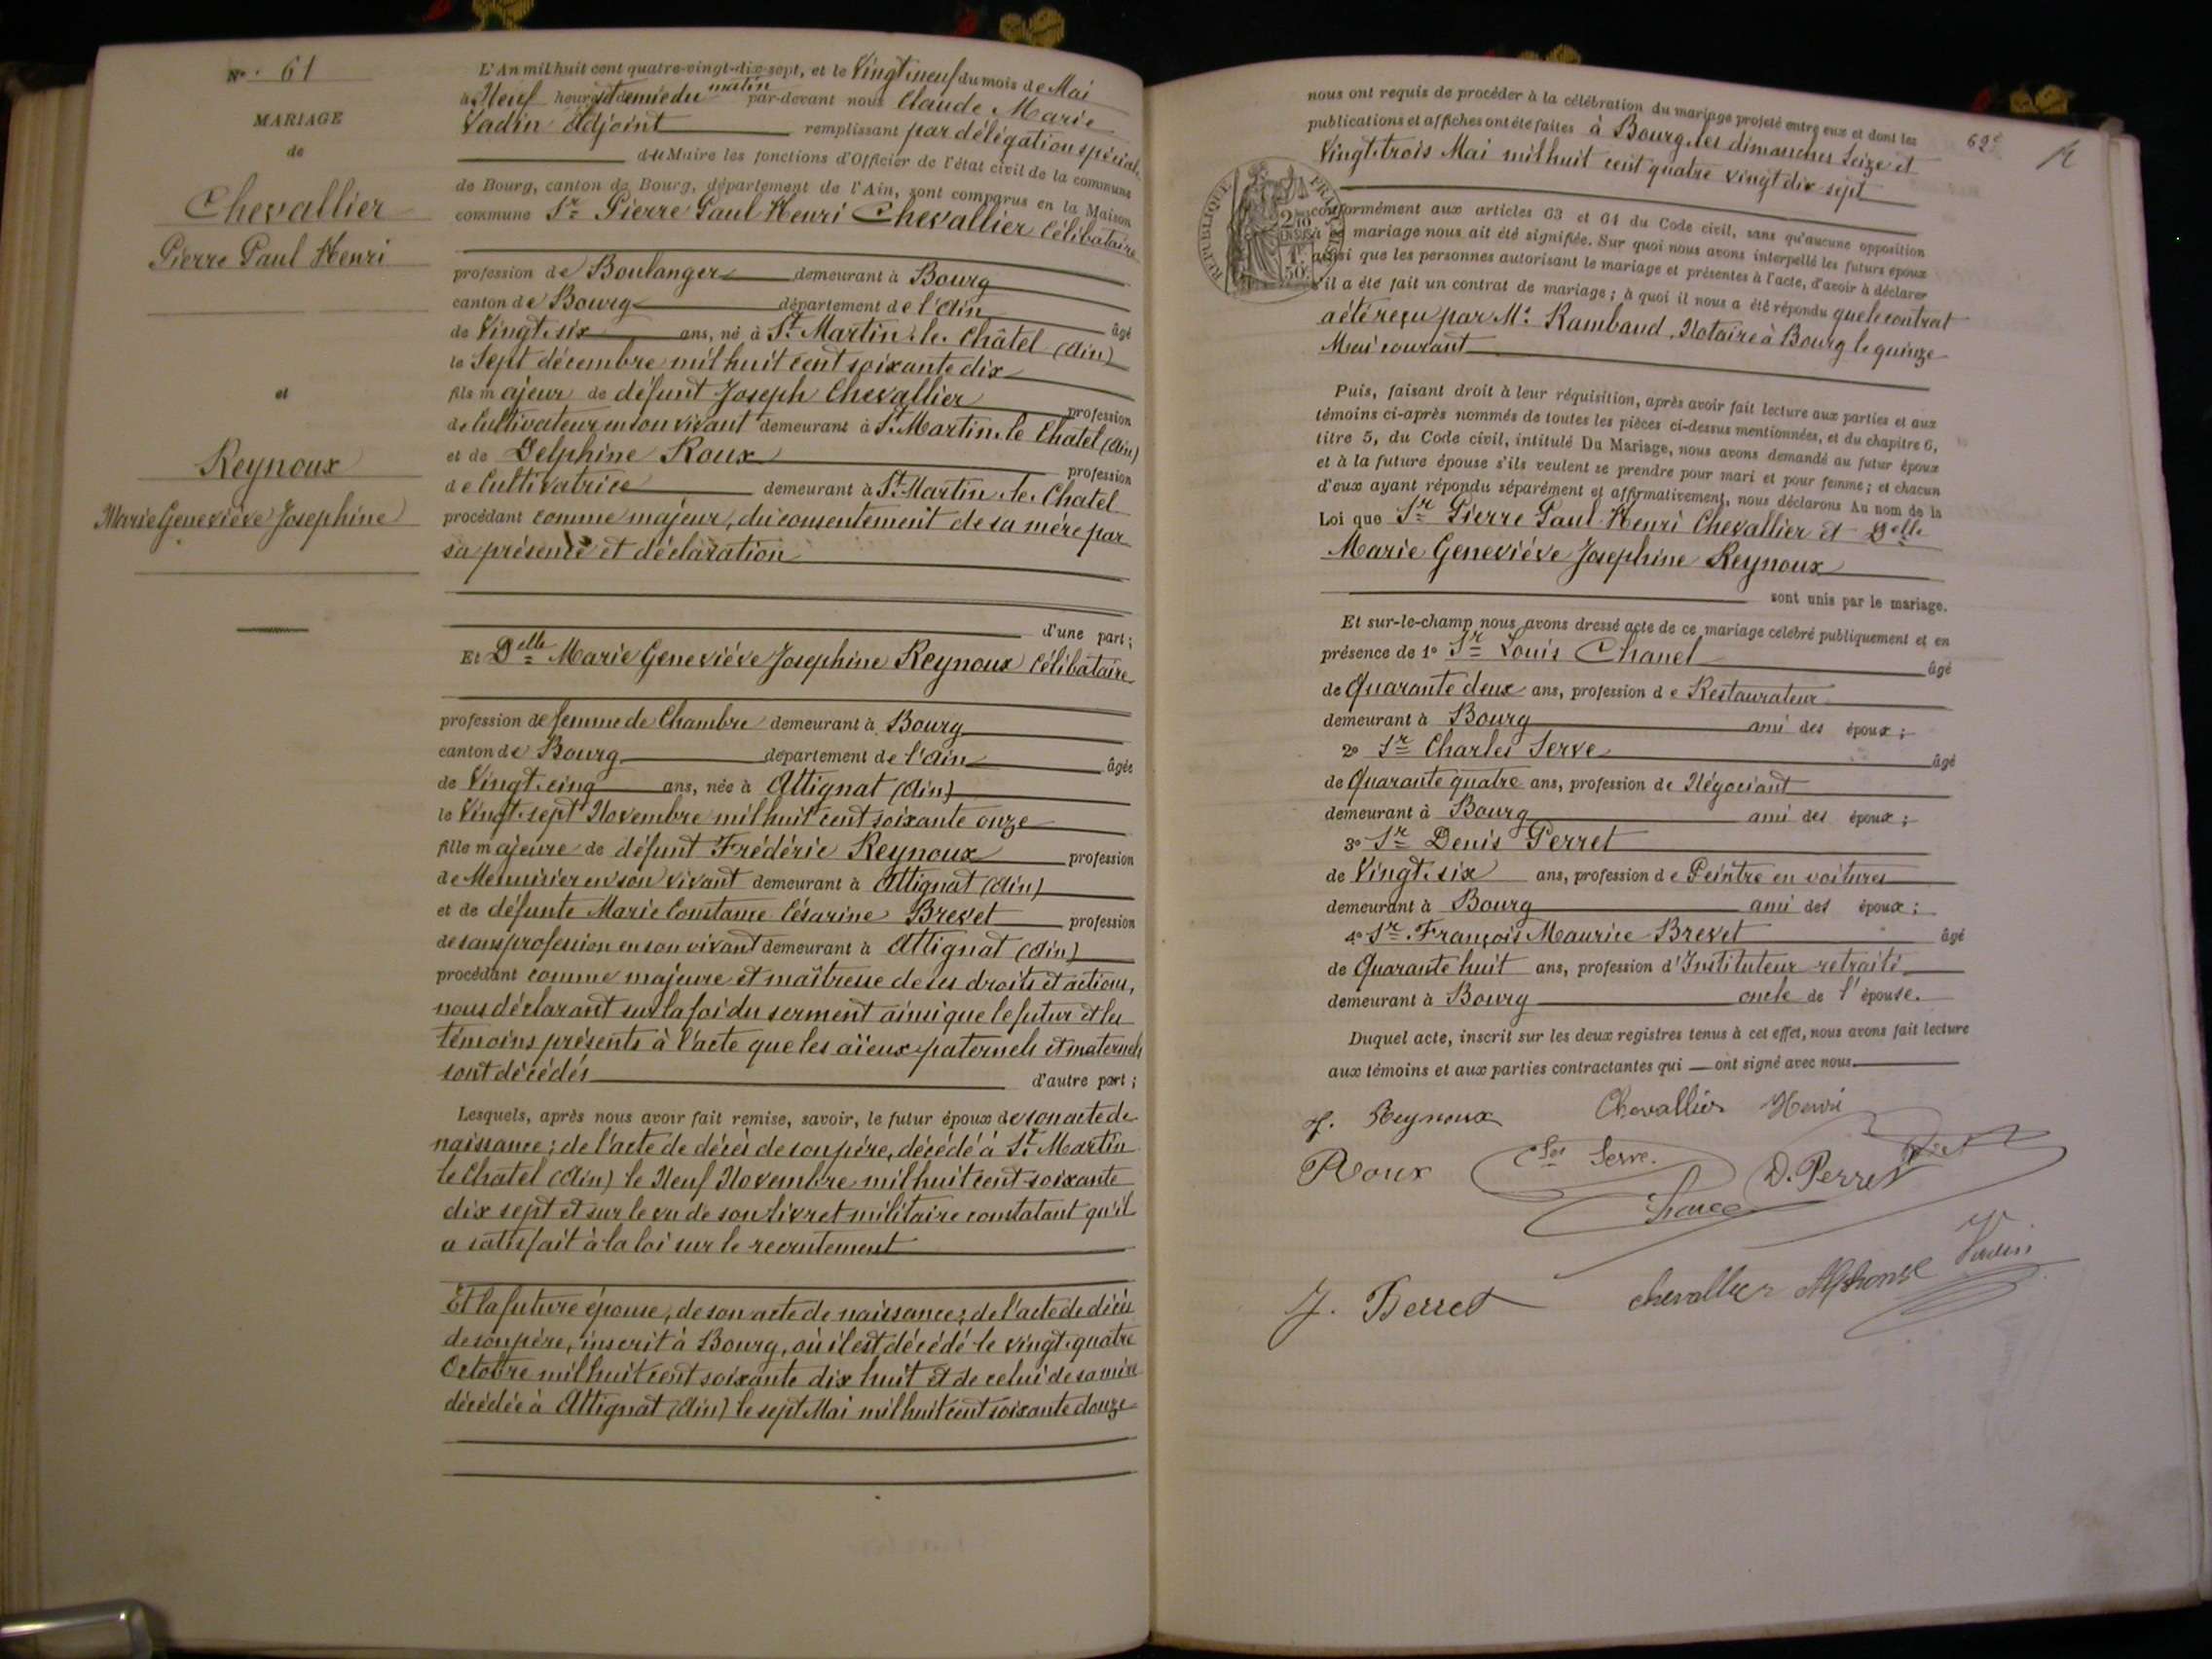 No. 61
MARIAGE
de
Chevallier
Pierre Paul Henri
et
Reynoux
Marie Geneviève Josephine
L'An mil huit cent quatre-vingt-dix-sept, et le Vingt neuf du mois de Mai
à Neuf heures et demie du matin par-devant nous Claude Marie
Vadin Adjoint remplissant par délégation spéciale
du Maire les fonctions d'Officier de l'état civil de la commune
de Bourg, canton de Bourg, département de l'Ain, sont comparus en la Maison
commune Sr Pierre Paul Henri Chevallier Célibataire
profession de Boulanger demeurant à Bourg
canton de Bourg département de l'Ain âgé
de Vingt-six ans, né à St Martin-le-Châtel (Ain)
le Sept décembre mil huit cent soixante dix
fils majeur de défunt Joseph Chevallier profession
de Cultivateur en son vivant demeurant à St Martin-le Chatel (Ain)
et de Delphine Roux profession
de Cultivatrice demeurant à St Martin-le-Chatel
procédant comme majeur, du consentement de sa mère par
sa présence et déclaration
d'une part;
Et Delle Marie Geneviève Josephine Reynoux Célibataire
profession de femme de Chambre demeurant à Bourg
canton de Bourg département de l'Ain âgée
de Vingt-cinq ans, née à Attignat (Ain)
le Vingt-sept Novembre mil huit cent soixante onze
fille majeure de défunt Frédéric Reynoux profession
de Menuisier en son vivant demeurant à Attignat (Ain)
et de défunte Marie Constance Césarine Brevet profession
de sans profession en son vivant demeurant à Attignat (Ain)
procédant comme majeure et maîtresse de ses droits et actions,
nous déclarant sur la foi du serment ainsi que le futur et les
témoins présents à l'acte que les aïeux paternels et maternels
sont décédés d'autre part;
Lesquels, après nous avoir fait remise, savoir, le futur époux de son acte de
naissance; de l'acte de décès de son père, décédé à St Martin
le Chatel (Ain) le Neuf Novembre mil huit cent soixante
dix sept et sur le vu de son livret militaire constatant qu'il
a satisfait à la loi sur le recrutement
Et la future épouse, de son acte de naissance; de l'acte de décès
de son père, inscrit à Bourg, où il est décédé le vingt-quatre
Octobre mil huit cent soixante dix huit et de celui de sa mère
décédée à Attignat (Ain) le sept Mai mil huit cent soixante douze
62e
nous ont requis de procéder à la célébration du mariage projeté entre eux et dont les
publications et affiches ont été faites à Bourg, les dimanches Seize et
Vingt trois Mai mil huit cent quatre vingt dix sept
RÉPUBLIQUE FRANÇAISE
2/10
EN SUS
1F
50c
conformément aux articles 63 et 64 du Code civil, sans qu'aucune opposition
à ce mariage nous ait été signifiée. Sur quoi nous avons interpellé les futurs époux
ainsi que les personnes autorisant le mariage et présentes à l'acte, d'avoir à déclarer
s'il a été fait un contrat de mariage; à quoi il nous a été répondu que le contrat
a été reçu par Me Rambaud, Notaire à Bourg le quinze
Mai courant
Puis, faisant droit à leur réquisition, après avoir fait lecture aux parties et aux
témoins ci-après nommés de toutes les pièces ci-dessus mentionnées, et du chapitre 6,
titre 5, du Code civil, intitulé Du Mariage, nous avons demandé au futur époux
et à la future épouse s'ils veulent se prendre pour mari et pour femme; et chacun
d'eux ayant répondu séparément et affirmativement, nous déclarons Au nom de la
Loi que Sr Pierre Paul Henri Chevallier et Delle
Marie Geneviève Josephine Reynoux
sont unis par le mariage.
Et sur-le-champ nous avons dressé acte de ce mariage célébré publiquement et en
présence de 1° Sr Louis Chanel âgé
de Quarante deux ans, profession de Restaurateur
demeurant à Bourg ami des époux;
2° Sr Charles Serve âgé
de Quarante quatre ans, profession de Négociant
demeurant à Bourg ami des époux;
3° Sr Denis Perret
de Vingt-six ans, profession de Peintre en voitures
demeurant à Bourg ami des époux;
4° Sr François Maurice Brevet âgé
de Quarante huit ans, profession d'Instituteur retraité
demeurant à Bourg oncle de l'épouse.
Duquel acte, inscrit sur les deux registres tenus à cet effet, nous avons fait lecture
aux témoins et aux parties contractantes qui ont signé avec nous.
J. Reynoux Chevallier Henri
Roux Ches Serve. D. Perret
chevallier Alphonse Vadin